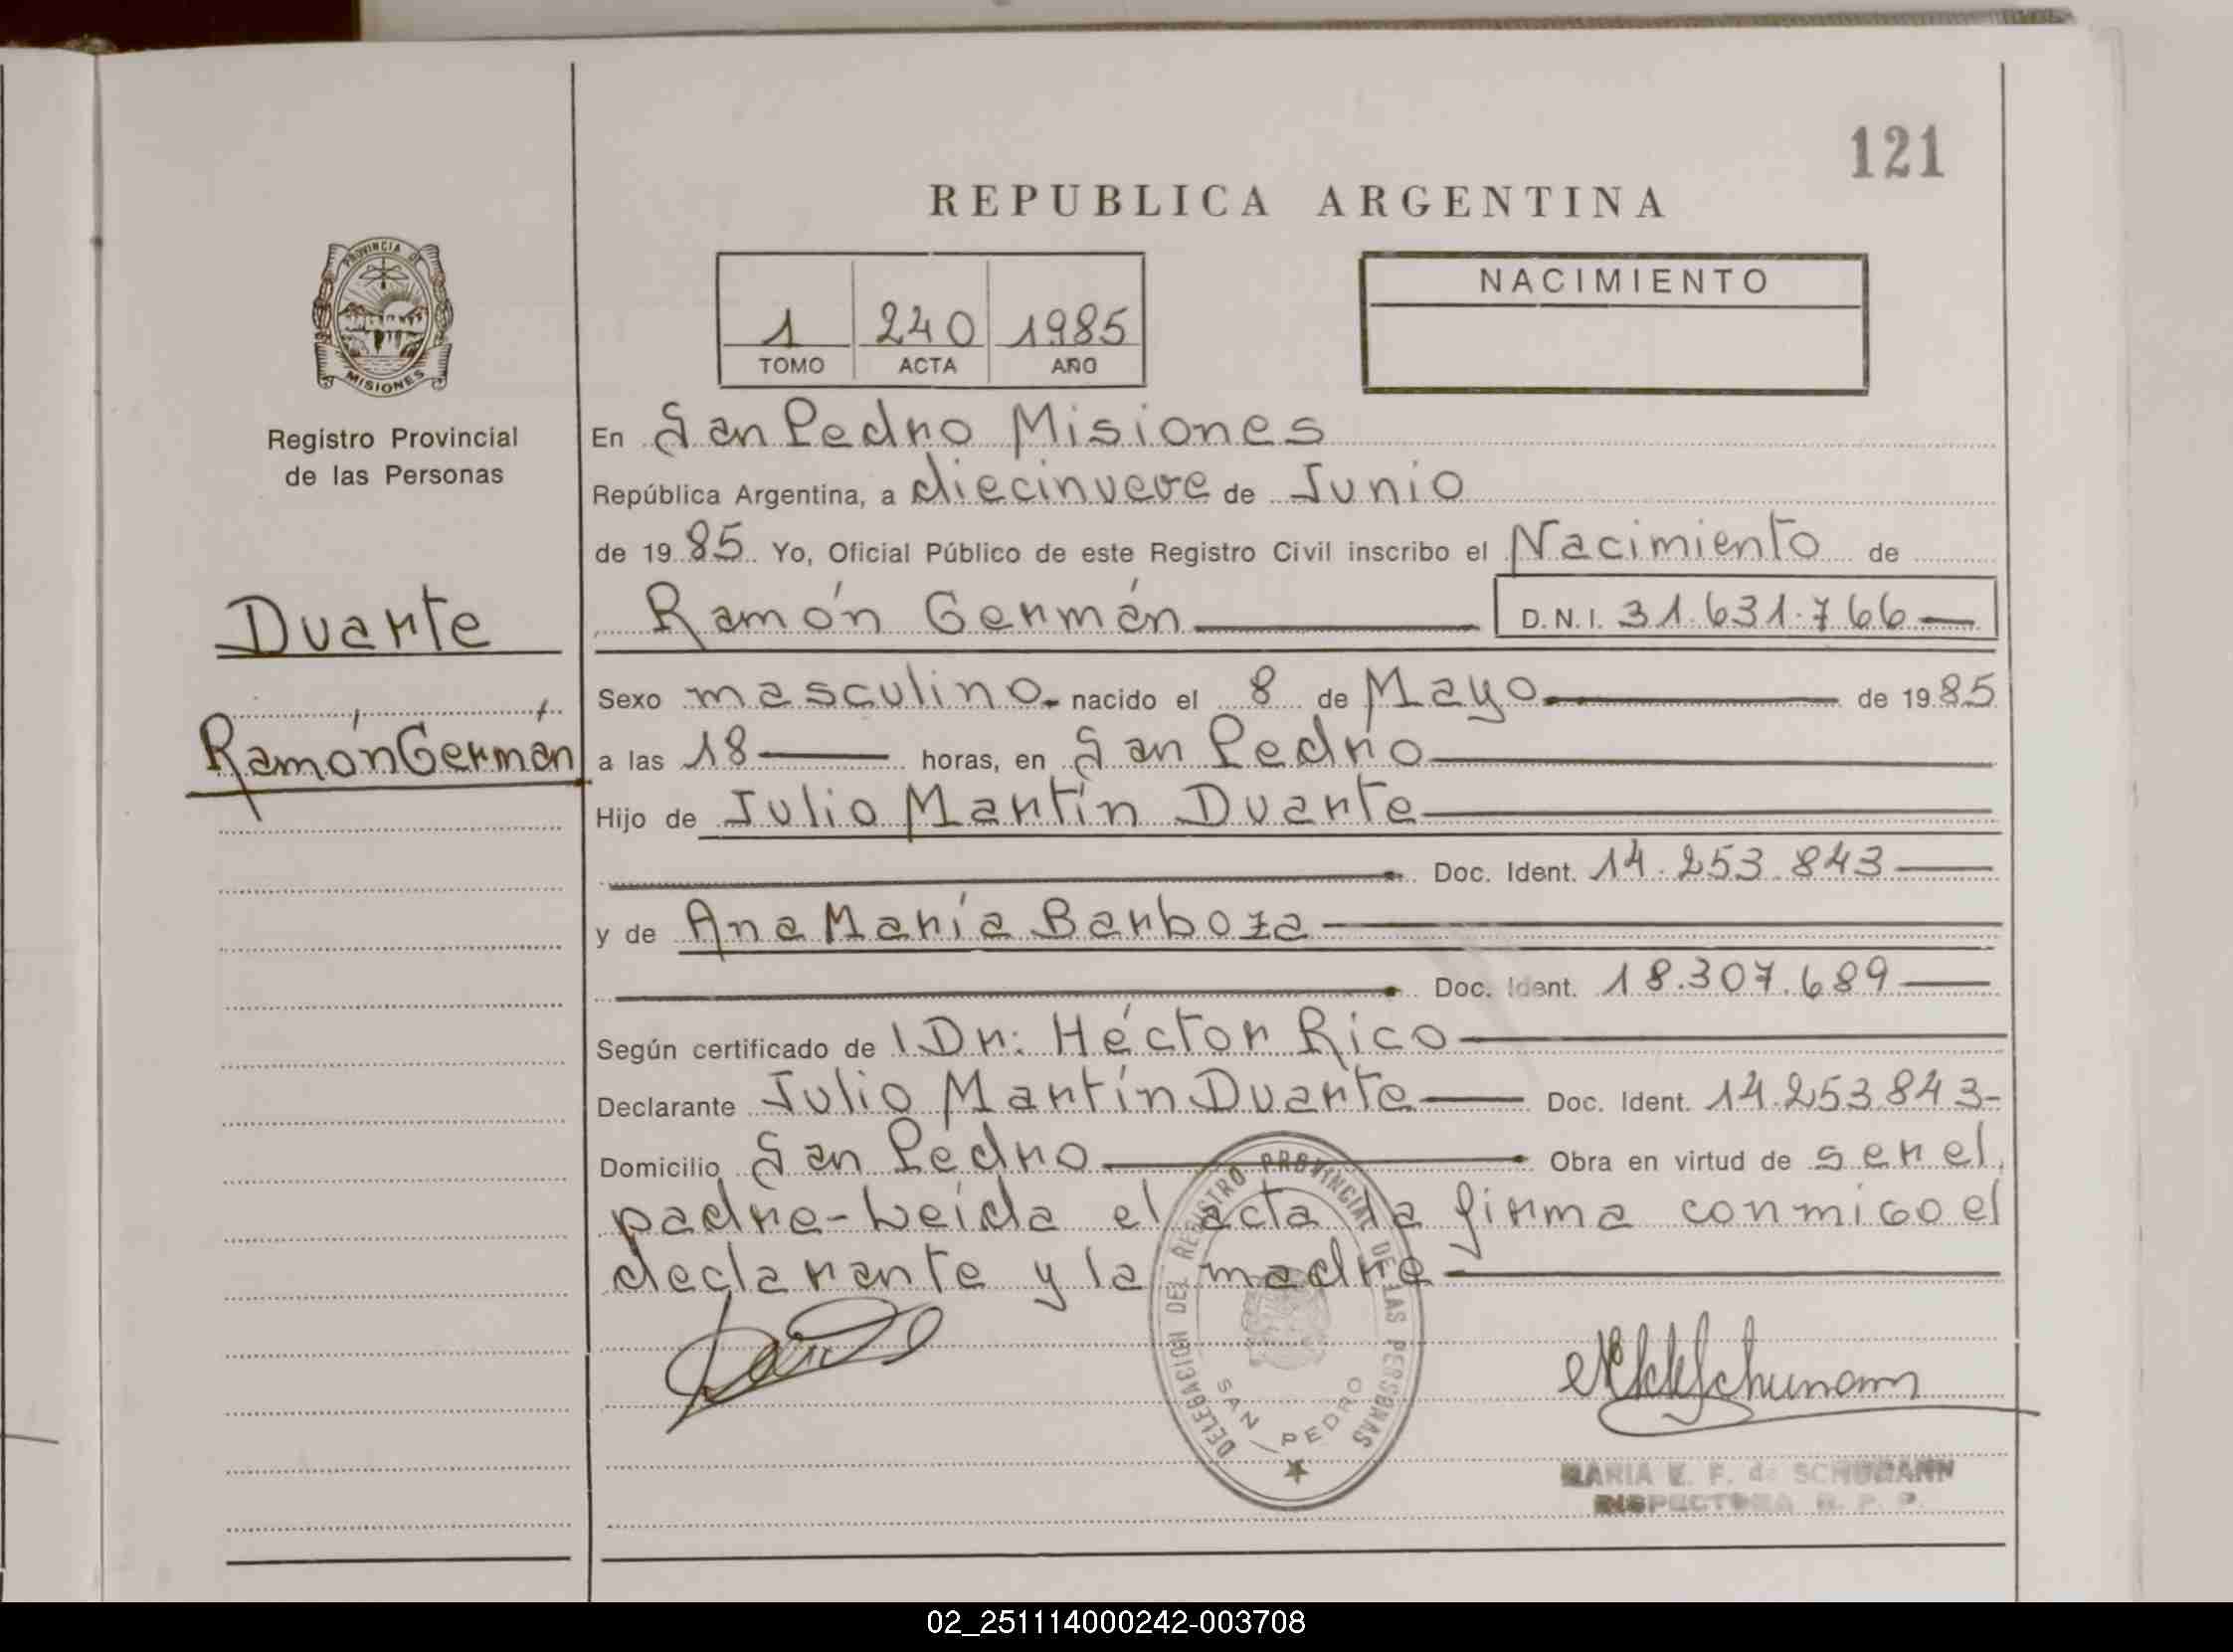 121
REPUBLICA ARGENTINA
PROVINCIA DE
MISIONES
Registro Provincial
de las Personas
1 240 1985
TOMO ACTA AÑO
NACIMIENTO
En San Pedro Misiones
República Argentina, a diecinueve de Junio
de 1985 Yo, Oficial Público de este Registro Civil inscribo el Nacimiento de
Duarte
Ramón Germán
Ramón Germán D.N.I. 31.631.766
Sexo masculino nacido el 8 de Mayo de 1985
a las 18 horas, en San Pedro
Hijo de Julio Martín Duarte
Doc. Ident. 14.253.843
y de Ana María Barboza
Doc. Ident. 18.307.689
Según certificado de Dr: Héctor Rico
Declarante Julio Martín Duarte Doc. Ident. 14.253.843-
Domicilio San Pedro Obra en virtud de ser el
padre-Leída el acta la firma conmigo el
declarante y la madre
DELEGACION DEL REGISTRO PROVINCIAL DE LAS PERSONAS
SAN PEDRO
MARIA E. F. de SCHUMANN
INSPECTORA R. P. P.
02_251114000242-003708